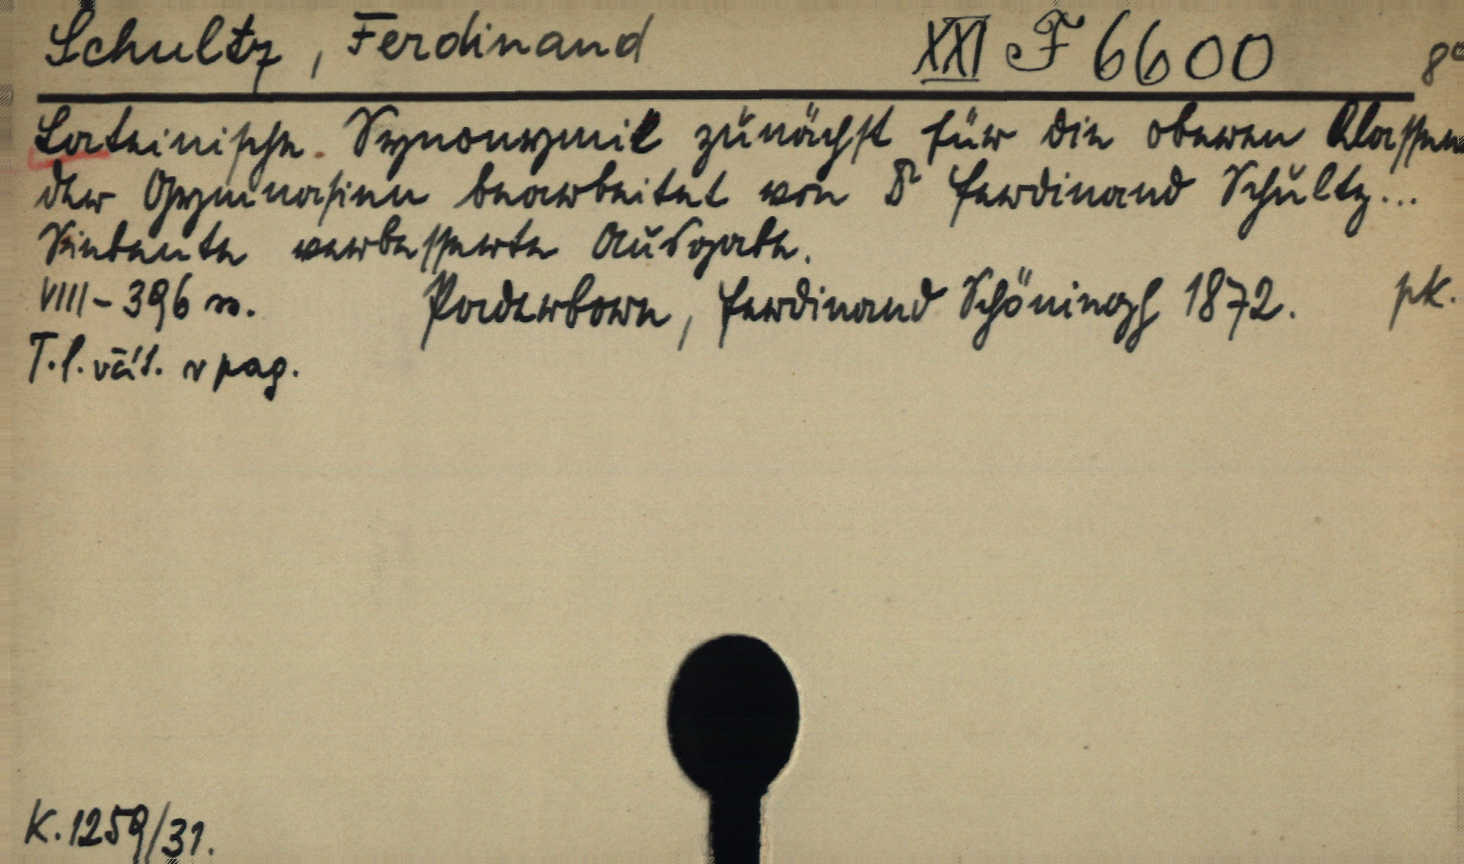 Schultz, Ferdinand XXI F 6600 8°
Lateinische Synonymik zunächst für die oberen Klassen
der Gymnasien bearbeitet von Dr Ferdinand Schultz...
Siebente verbesserte Ausgabe.
VIII - 396 s. Paderborn, Ferdinand Schöningh 1872. pk.
T. l. včít. v pag.
K. 1259/31.